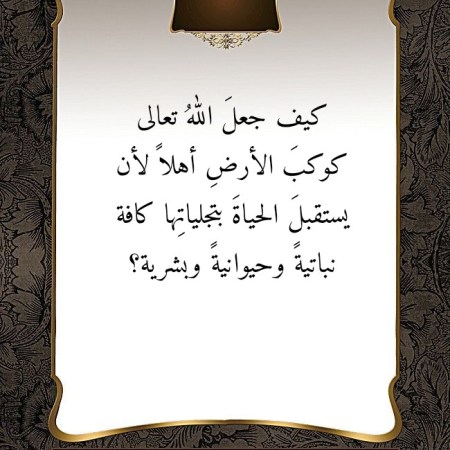 كيف جعلَ اللهُ تعالى
كوكبَ الأرضِ أهلاً لأن
يستقبلَ الحياةَ بتجلياتِها كافة
نباتيةً وحيوانيةً وبشرية؟